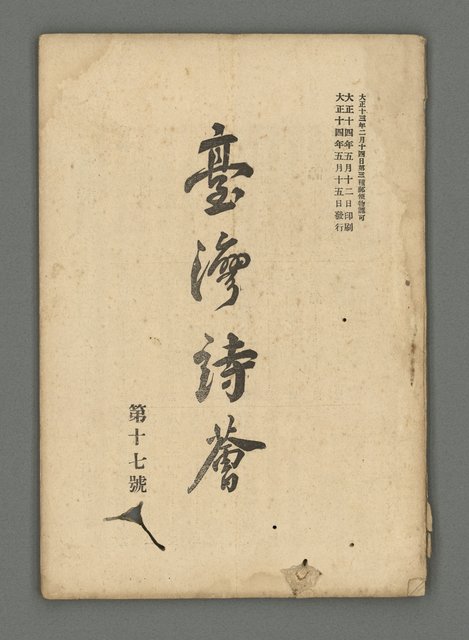 大正十三年二月十四日第三種郵便物認可
大正十四年五月十二日印刷
大正十四年五月十五日發行
臺灣詩薈
第十七號